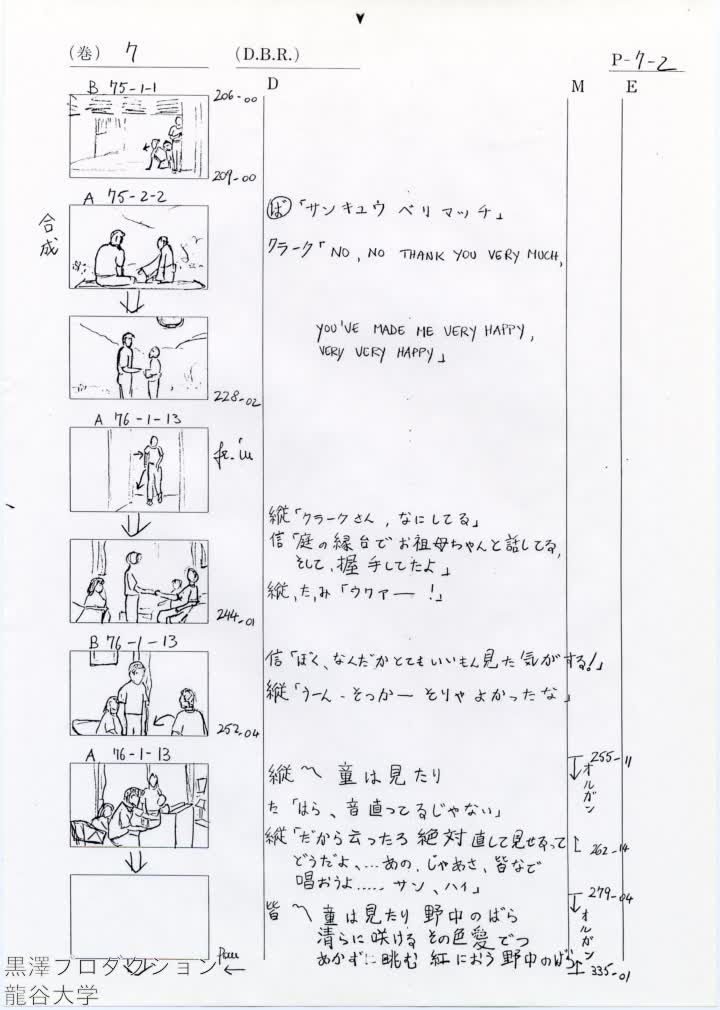 (巻) 7 (D.B.R.) P-7-2
D M E
B 75-1-1 206-00
209-00
A 75-2-2
合成
ば「サンキュウ ベリ マッチ」
クラーク「NO, NO THANK YOU VERY MUCH,
YOU'VE MADE ME VERY HAPPY,
VERY VERY HAPPY」
228-02
A 76-1-13
fr.in
縦「クラークさん, なにしてる」
信「庭の縁台でお祖母ちゃんと話してる,
そして、握手してたよ」
縦,た,み「ウワァー!」
244-01
B 76-1-13
信「ぼく、なんだかとてもいいもん見た気がする!」
縦「うーん、そっかー そりゃ よかったな」
252-04
A 76-1-13
255-11
オルガン
縦〜 童は見たり
た「ほら、音直ってるじゃない」
縦「だから云ったろ 絶対直して見せるって
どうだよ、…あの、じゃあさ、皆なで
唱おうよ….. サン、ハイ」
262-14
279-04
オルガン
皆〜 童は見たり 野中のばら
清らに咲ける その色愛でつ
あかずに眺む 紅におう 野中のばら
335-01
Pan
黒澤プロダクション
龍谷大学